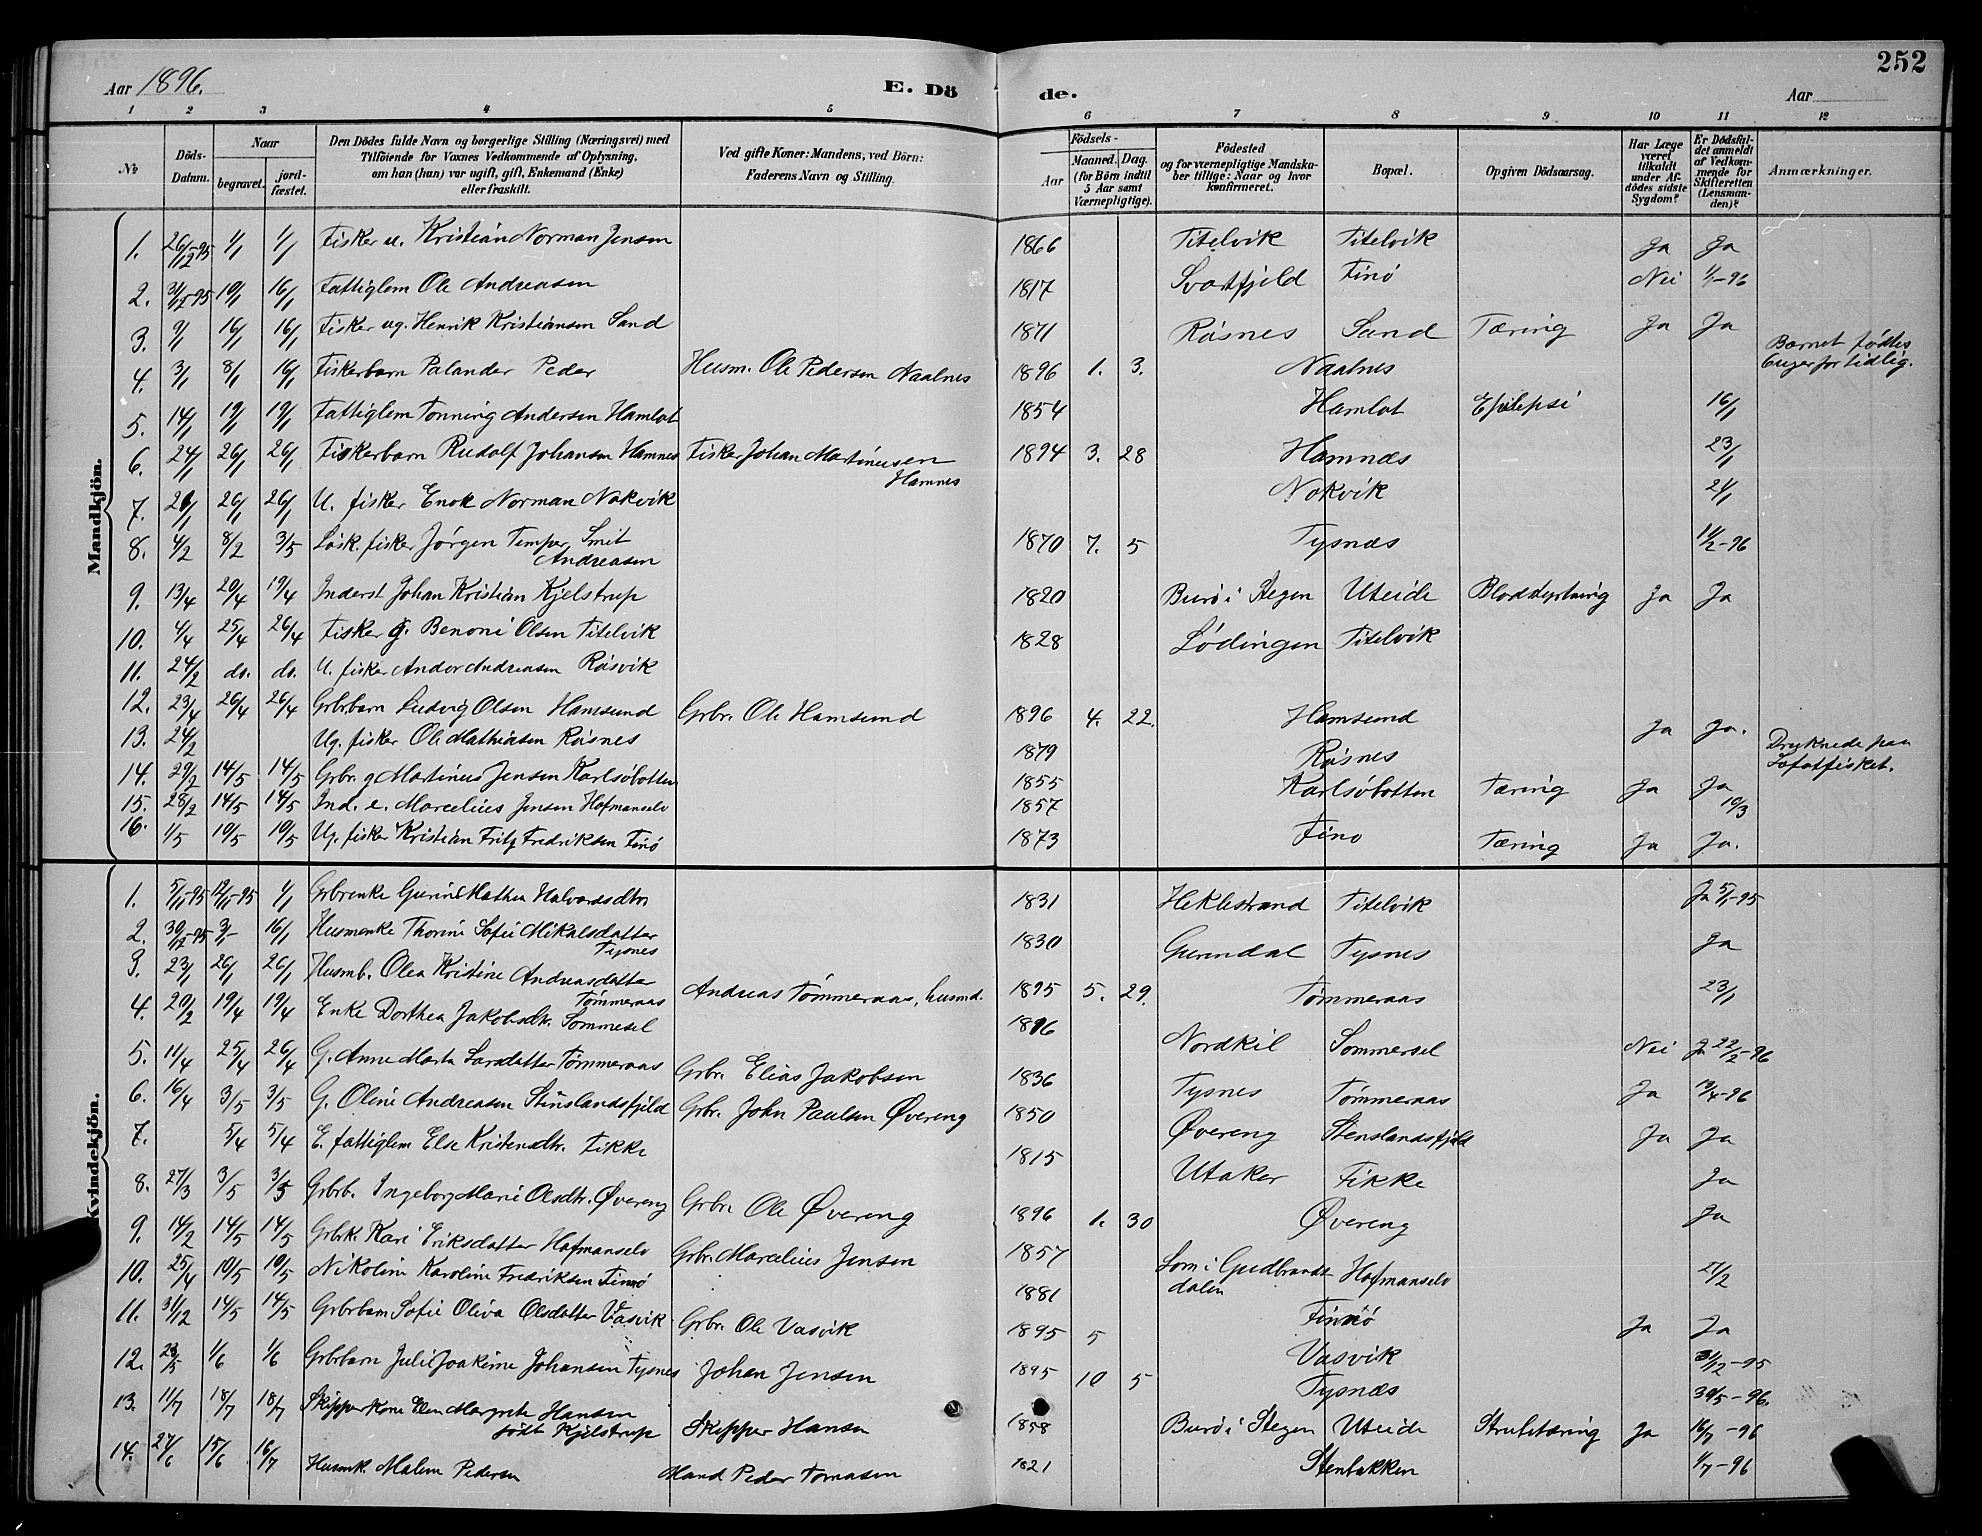 252
Aar 1896. E. Dö de. Aar
1 2 3 4 5 6 7 8 9 10 11 12
No.
Döds-Datum.
Naar
begravet.
jordfæstet.
Den Dödes fulde Navn og borgerlige Stilling (Næringsvei) med
Tilföiende for Voxnes Vedkommende af Oplysning,
om han (hun) var ugift, gift, Enkemand (Enke)
eller fraskilt.
Ved gifte Koner: Mandens, ved Börn:
Faderens Navn og Stilling.
Födsels-
Aar
Maaned. Dag.
(for Börn indtil
5 Aar samt
Værnepligtige).
Födested
og for værnepligtige Mandska-
ber tillige: Naar og hvor
konfirmeret.
Bopæl.
Opgiven Dödsaarsag.
Har Læge
været
tilkaldt
under Af-
dödes sidste
Sygdom?
Er Dödsfal-
det anmeldt
af Vedkom-
mende for
Skifteretten
(Lensman-
den)?
Anmærkninger.
Mandkjön.
1. 26/12-95 1/1 1/1 Fisker u. Kristian Norman Jensen 1866 Titelvik Titelvik Ja Ja
2. 31/12-95 10/1 16/1 Fattiglem Ole Andreasen 1817 Svartfjeld Finö Nei 1/1-96
3. 9/1 16/1 16/1 Fisker ug. Henrik Kristiansen Sand 1871 Råsnes Sand Tæring Ja Ja
4. 3/1 8/1 16/1 Fiskerbarn Palander Peder Husm. Ole Pedersen Naalnes 1896 1. 3. Naalnes Barnet fødtes
6 uger for tidlig.
5. 14/1 19/1 19/1 Fattiglem Tønning Andersen Hamlot 1854 Hamlot Epilepsi 16/1
6. 24/1 26/1 26/1 Fiskerbarn Rudolf Johansen Hamnes Fisker Johan Martinusen
Hamnes 1894 3. 28 Hamnæs 23/1
7. 20/1 26/1 26/1 U. fisker Enok Norman Nokvik Nokvik 21/1
8. 4/2 8/2 3/5 Løsk. fisker Jörgen Temper Smit
Andreasen 1870 7. 5 Tysnæs 11/2-96
9. 13/4 20/4 19/4 Inderst Johan Kristian Kjelstrup 1820 Burö i Stegen Uteide Blodstyrtning Ja Ja
10. 4/4 25/4 26/4 Fisker g. Benoni Olsen Titelvik 1828 Lödingen Titelvik
11. 24/2 do. do. U. fisker Andor Andreasen Råsvik
12. 23/4 26/4 26/4 Grbr.barn Ludvig Olsen Hamsund Grbr. Ole Hamsund 1896 4. 22. Hamsund Ja Ja.
13. 24/2 Ug. fisker Ole Mathiasen Råsnes 1879 Råsnes Druknede paa
Lofotfisket.
14. 29/2 14/5 14/5 Grbr. g Martinus Jensen Karlsöbotten 1855 Karlsöbotten Tæring Ja Ja
15. 28/2 14/5 14/5 Ind. e. Marcelius Jensen Hofmanselv 1857 19/3
16. 1/5 10/5 10/5 Ug. fisker Kristian Fritz Fredriksen Finö 1873 Finö Tæring Ja Ja.
Kvindekjön.
1. 5/11-95 12/11-95 1/1 Grbrenke Gurine Mathea Halvorsdtr 1831 Heklestrand Titelvik Ja 5/1-95
2. 30/12-95 3/1 16/1 Husmenke Thorine Sofie Mikalsdatter
Tysnes 1830 Gurendal Tysnes Ja
3. 23/1 26/1 26/1 Husmb. Olea Kristine Andreasdatter
Tømmeraas Andreas Tømmeraas, husmd. 1895 5. 29. Tømmeraas 23/1
4. 20/2 19/4 19/4 Enke Dorthea Jakobsdtr. Sommesel 1816 Nordkil Sommersel Nei Ja 22/2-96
5. 11/4 25/4 26/4 G. Anne Marta Larsdatter Tømmeraas Grbr. Elias Jakobsen 1836 Tysnes Tømmeraas Ja 13/4-96
6. 16/4 3/5 3/5 G. Oline Andreasen Stenslandsfjeld Grbr. John Paulsen Øvereng 1850 Øvereng Stenslandsfjeld Ja Ja
7. 5/4 5/4 E. fattiglem Else Kristensdtr. Fikke 1815 Utaker Fikke Ja
8. 27/3 3/5 3/5 Grbrb. Ingeborg Marie Olsdtr. Øvereng Grbr. Ole Øvereng 1896 1. 30 Øvereng Ja
9. 14/2 14/5 14/5 Grbrk. Kari Eriksdatter Hofmanselv Grbr. Marcelius Jensen 1857 Lom i Gudbrandsdalen Hofmanselv 21/2
10. 25/4 10/5 10/5 Nikoline Karoline Fredriksen Finnö 1881 Finnö Ja Ja
11. 31/12 14/5 14/5 Grbrbarn Sofie Oliva Olsdatter Vasvik Grbr. Ole Vasvik 1895 5 Vasvik 31/12-95
12. 23/5 1/6 1/6 Grbrbarn Julie Joakime Johansen Tysnes Johan Jensen 1895 10 5 Tysnæs 30/5-96.
13. 11/7 18/7 18/7 Skipperkone Elen Margrete Hansen
født Kjelstrup Skipper Hansen 1858 Burö i Stegen Uteide Strubetæring Ja 16/7-96
14. 27/6 15/6 16/7 Husmk. Malene Pedersen Mand Peder Tomasen 1821 Stenbakken 1/7-96